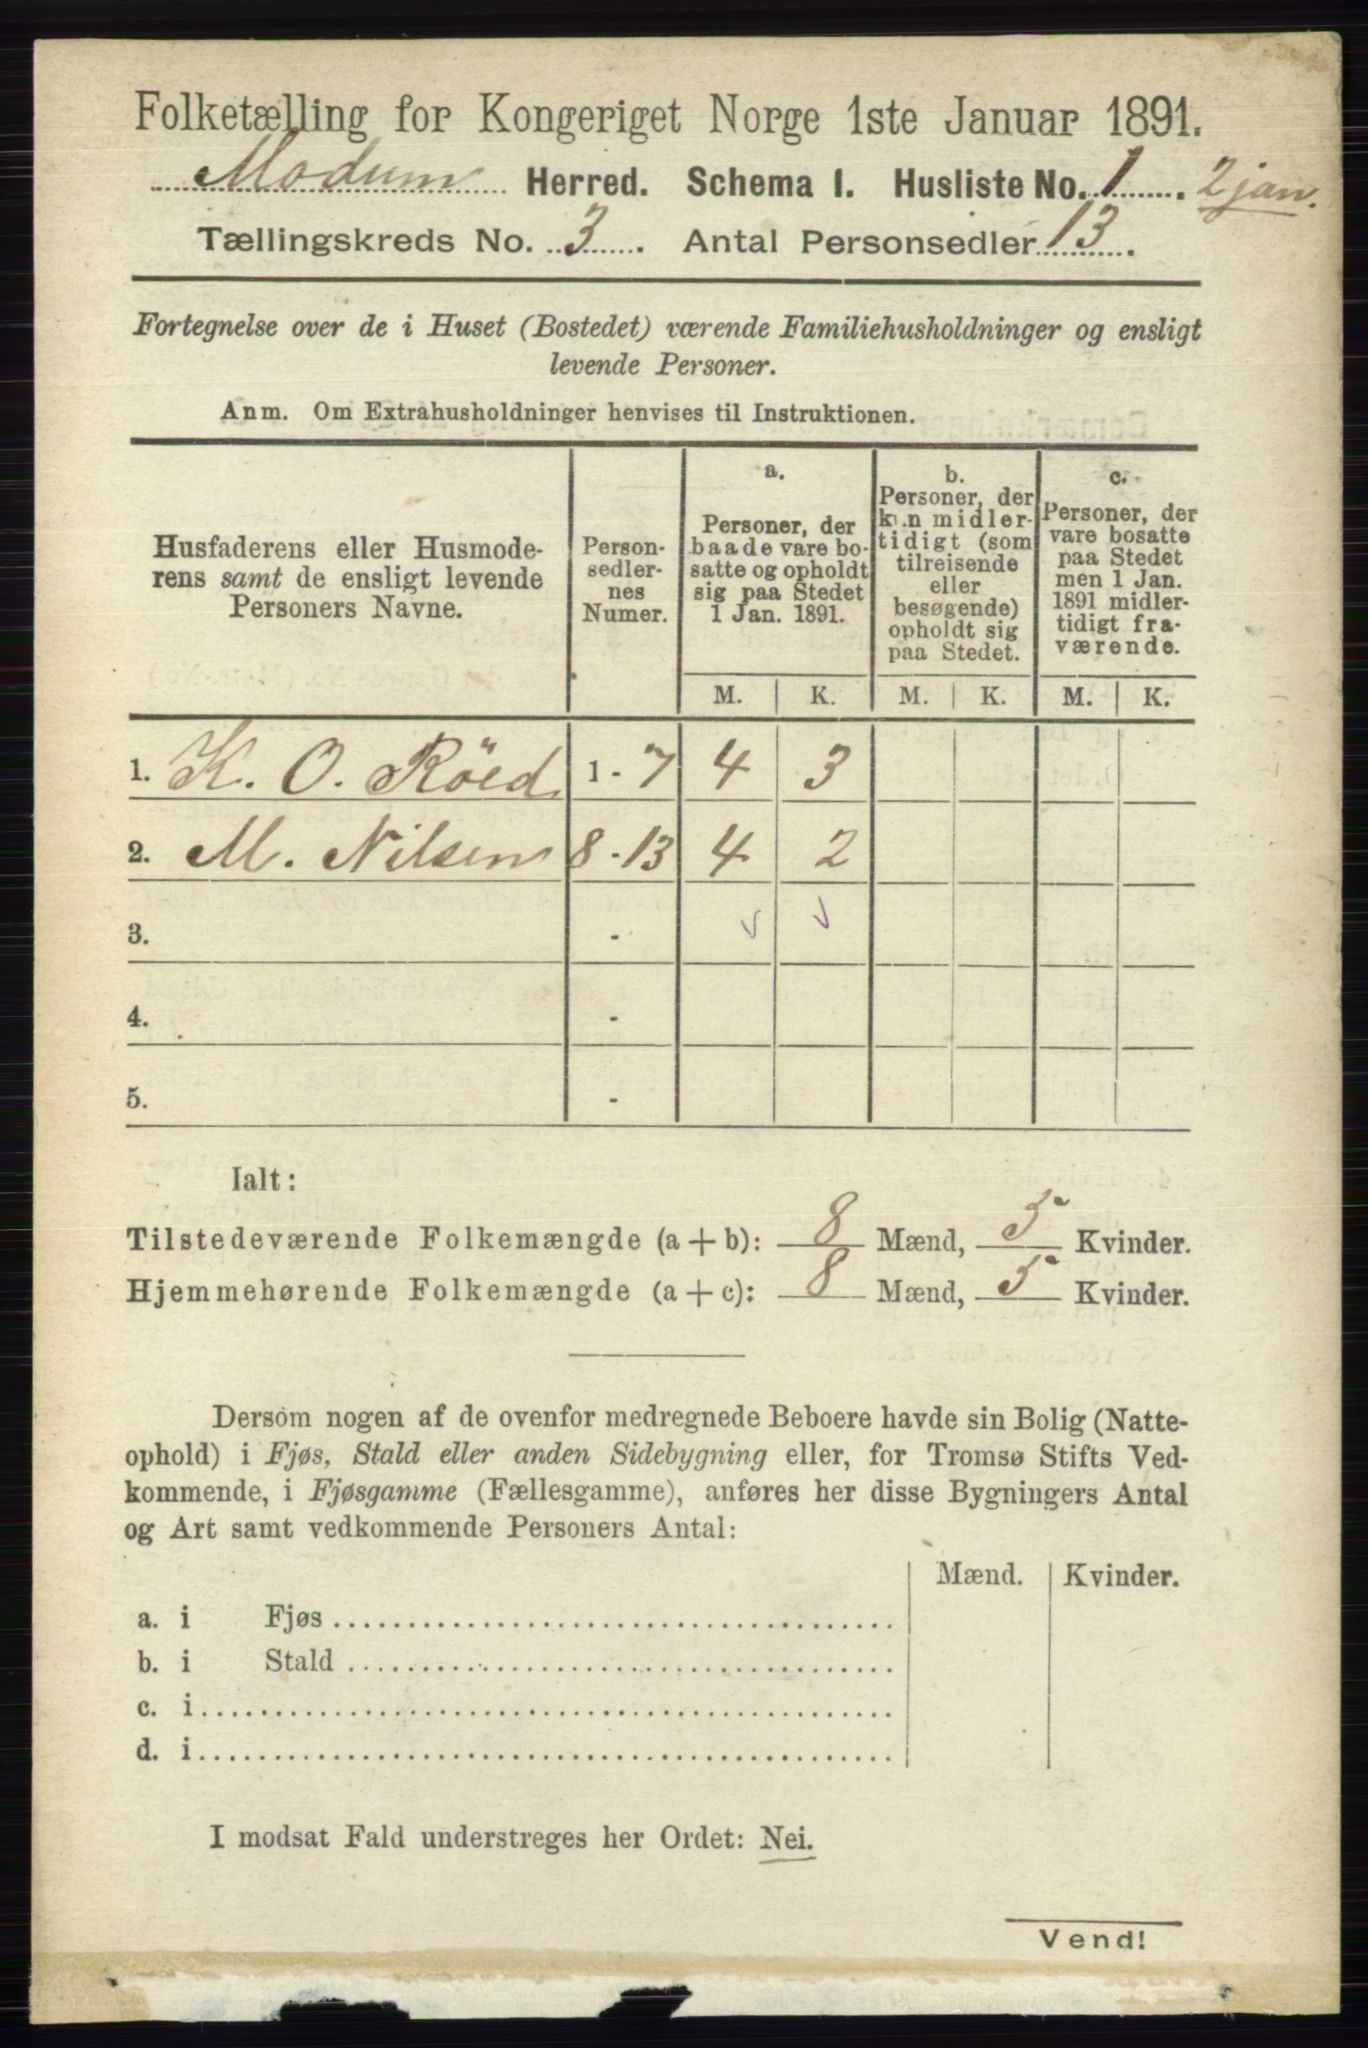 Folketælling for Kongeriget Norge 1ste Januar 1891.
Modum Herred. Schema I. Husliste No. 1. 2 jan.
Tællingskreds No. 3. Antal Personsedler 13.
Fortegnelse over de i Huset (Bostedet) værende Familiehusholdninger og ensligt
levende Personer.
Anm. Om Extrahusholdninger henvises til Instruktionen.
Husfaderens eller Husmode-
rens samt de ensligt levende
Personers Navne.
Person-
sedler-
nes
Numer.
a.
Personer, der
baade vare bo-
satte og opholdt
sig paa Stedet
1 Jan. 1891.
b.
Personer, der
kun midler-
tidigt (som
tilreisende
eller
besøgende)
opholdt sig
paa Stedet.
c.
Personer, der
vare bosatte
paa Stedet
men 1 Jan.
1891 midler-
tidigt fra-
værende.
M. K. M. K. M. K.
1. K. O. Röed 1 - 7 4 3
2. M. Nilsen 8 - 13 4 2
3. -
4. -
5. -
Ialt:
Tilstedeværende Folkemængde (a + b): 8 Mænd, 5 Kvinder.
Hjemmehørende Folkemængde (a + c): 8 Mænd, 5 Kvinder.
Dersom nogen af de ovenfor medregnede Beboere havde sin Bolig (Natte-
ophold) i Fjøs, Stald eller anden Sidebygning eller, for Tromsø Stifts Ved-
kommende, i Fjøsgamme (Fællesgamme), anføres her disse Bygningers Antal
og Art samt vedkommende Personers Antal:
Mænd. Kvinder.
a. i Fjøs
b. i Stald
c. i
d. i
I modsat Fald understreges her Ordet: Nei.
Vend!